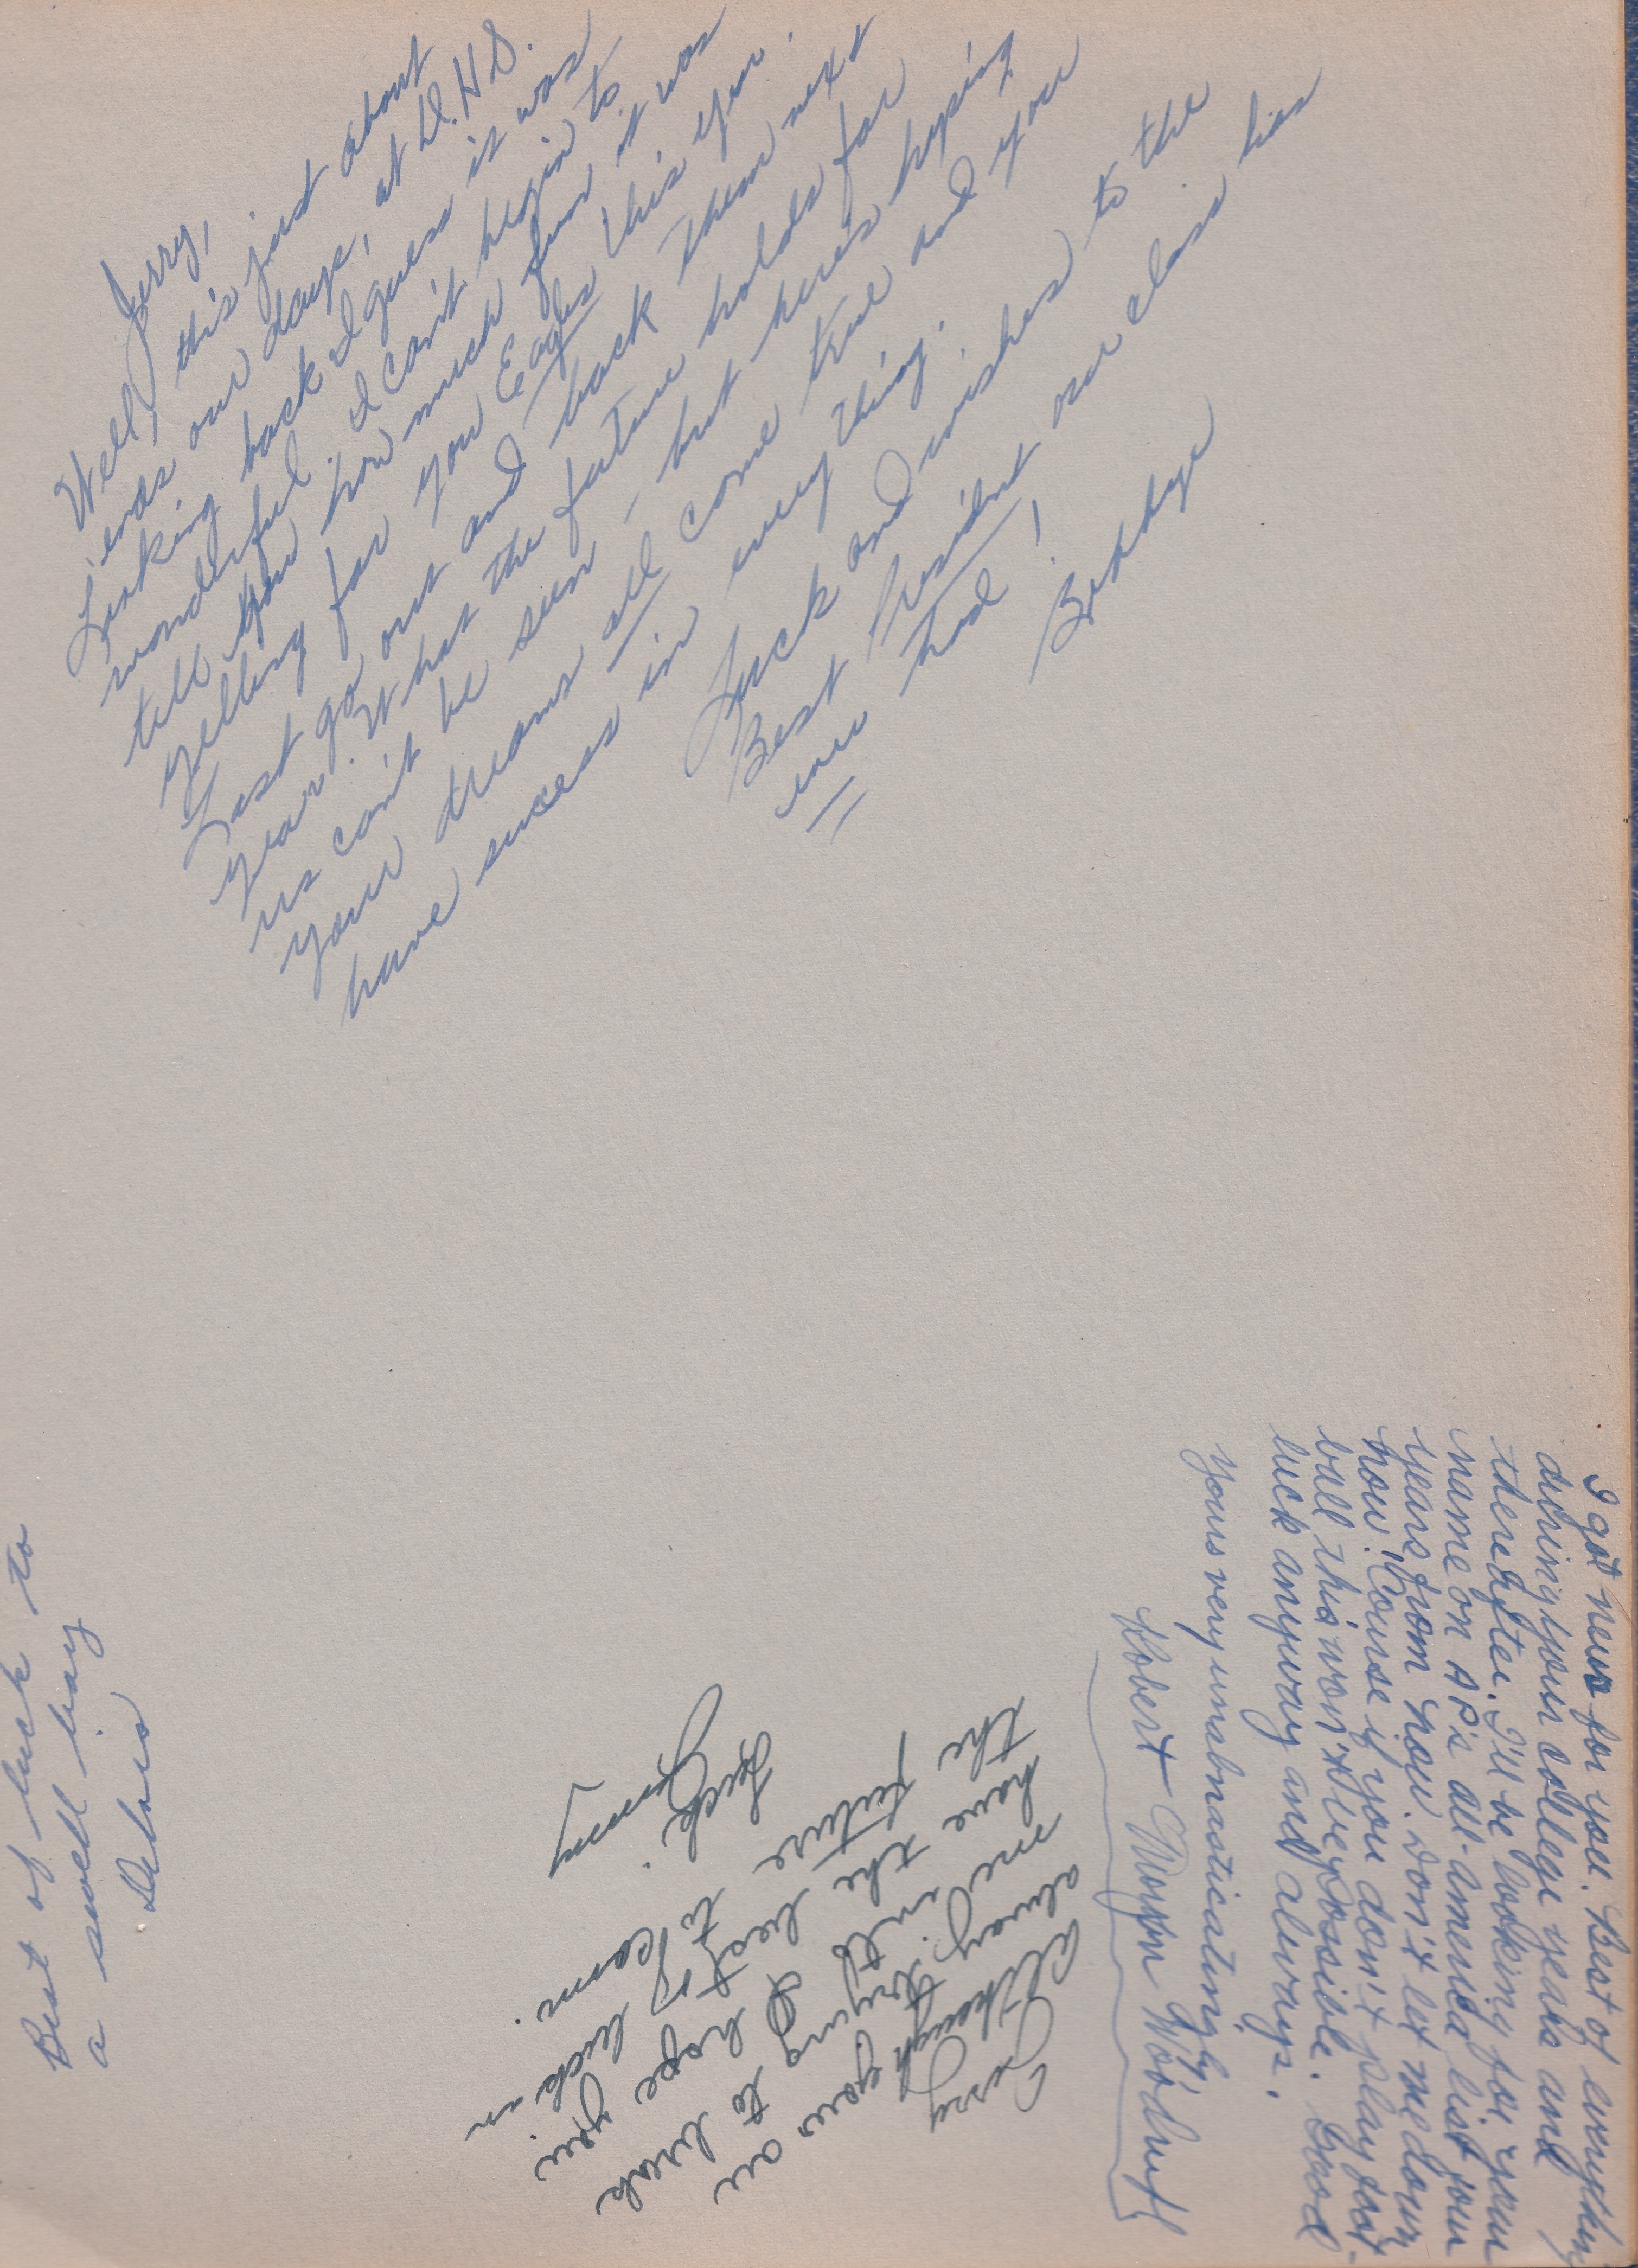 Jerry,
Well, this just about
ends our days, at D.H.S.
Looking back I guess it was
wonderful. I can't begin to
tell you how much fun it was
yelling for you Eagles this year.
Just go out and back them next
year. What the future holds for
us can't be seen - but here's hoping
your dreams all come true and you
have success in every thing.
Luck and wishes to the
Best President our class has
ever had!
I got news for you. Best of everything
during your college years and
thereafter. I'll be looking for your
name on AP's all-america list four
years from now. Don't let me down
now! Course if you don't play foot-
ball this won't be possible. Good
luck anyway and always.
Yours very unabmasticatingly,
Robert Woodruff
Jerry
Although your are
alway trying to break
me into I hope you
have the best of luck in
the future to come.
Luck.
Jimmy
Best of luck to
a swell boy
Delores